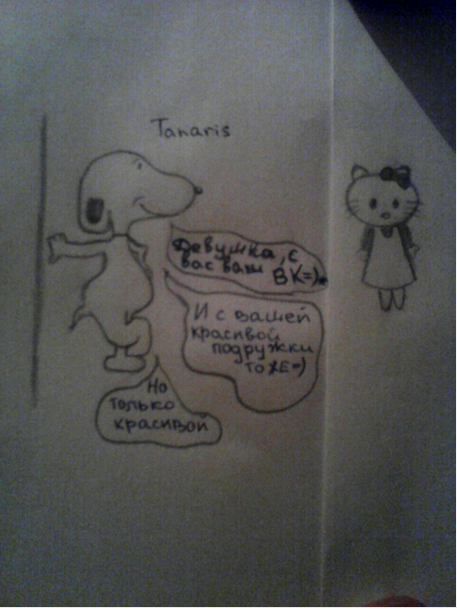 Tanaris
Девушка, с
вас ваш
ВК=).
И с вашей
красивой
подружки
тоже=)
Но
только
красивой